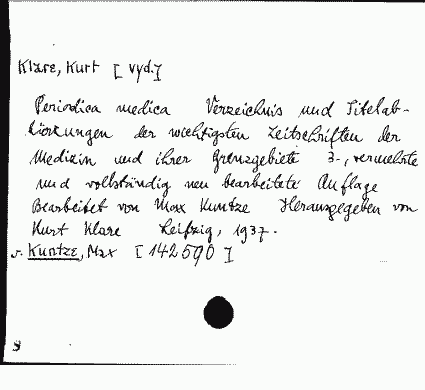 Klare, Kurt [vyd.]
Periodica medica Verzeichnis und Titelab-
kürzungen der wichtigsten Zeitschriften der
Medizin und ihrer Grenzgebiete 3., vermehrte
und vollständig neu bearbeitete Auflage
Bearbeitet von Max Kuntze Herausgegeben von
Kurt Klare Leipzig, 1937.
v. Kuntze, Max [142590]